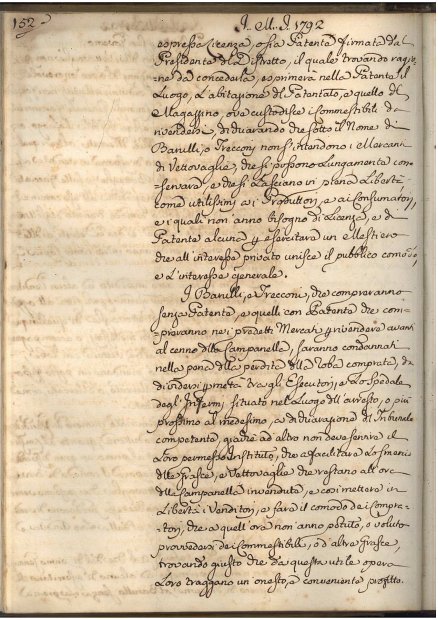 152.
I. M. I. 1792
espressa licenza, o sia Patente firmata dal
Presidente del Distretto, il quale trovando ragio-
ne da concederla, esprimerà nella Patente il
Luogo, l'abitazione del Patentato, e quello del
Magazzino, ove custodisce i commestibili da
rivendere, dichiarando che sotto il Nome di
Barulli, o Trecconi non s'intendono i Mercanti
di Vettovaglie, che si possono lungamente con-
servare, e che si lasciano in piena Libertà,
come utilissimi a i Produttori, e a i Consumatori,
e i quali non anno bisogno di Licenza, e di
Patente alcuna p esercitare un Mestiero
che all'interesse privato unisce il pubblico comodo,
e l'interesse generale.
I Barulli, e Trecconi, che compreranno
senza Patente, e quelli con Patente che com-
preranno nei predetti Mercati p rivendere avanti
al cenno della Campanella, saranno condannati
nella pena della perdita della roba comprata, da
dividersi p metà tra gli Esecutori, e lo Spedale
degl'Infermi situato nel Luogo dell'arresto, o più
prossimo al medesimo, a dichiarazione del Tribunale
competente, giacchè ad altro non deve servire il
Loro permesso Instituto, che a facilitare lo smercio
delle Grasce, e Vettovaglie che restano all'ora
della Campanella invendute, e così mettere in
Libertà i Venditori, e fare il comodo dei Compra-
tori, che a quell'ora non anno potuto, o voluto
provvedersi dei commestibili, od altre Grasce,
trovando giusto che da questa utile opera
Loro traggano un onesto, e conveniente profitto.